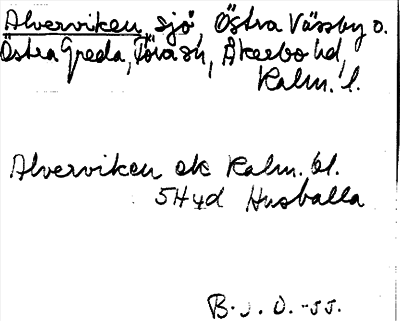 Alverviken, sjö, Östra Vässby o.
Östra Greda, Löra sn, Åkerbo hd,
Kalm. l.
Alverviken ek Kalm. bl.
5H4d Husvalla
B. J. O. -55.